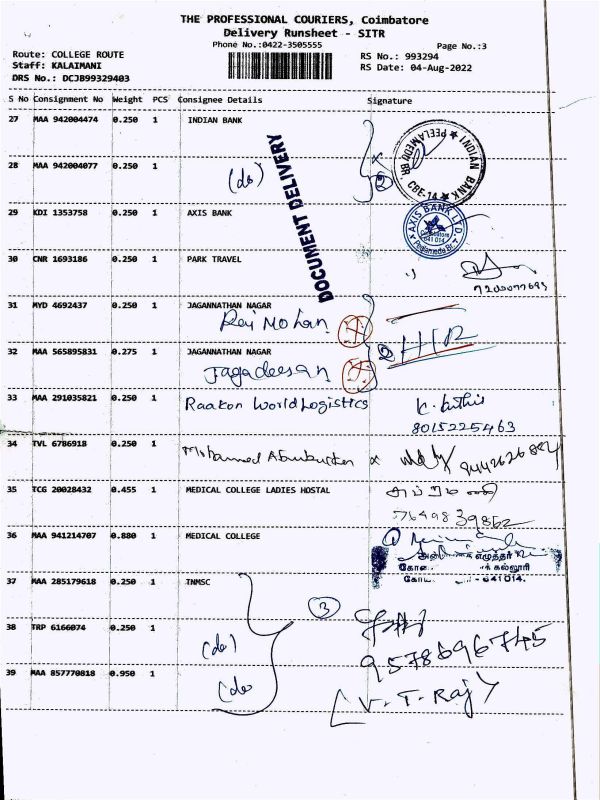 THE PROFESSIONAL COURIERS, Coimbatore
Delivery Runsheet - SITR
Phone No.:0422-3505555
Page No.:3
Route: COLLEGE ROUTE
RS No.: 993294
Staff: KALAIMANI
RS Date: 04-Aug-2022
DRS No.: DCJB99329403
S No Consignment No Weight PCS Consignee Details Signature
27 MAA 942004474 0.250 1 INDIAN BANK
INDIAN BANK ★ PEELAMEDU BR. CBE-14 ★
28 MAA 942004077 0.250 1 (do) x 2
DOCUMENT DELIVERY
29 KDI 1353758 0.250 1 AXIS BANK
AXIS BANK LTD. ★ Peelamedu Br. ★ Coimbatore 641 014
30 CNR 1693186 0.250 1 PARK TRAVEL
31 MYD 4692437 0.250 1 JAGANNATHAN NAGAR
Raj Mohan
32 MAA 565895831 0.275 1 JAGANNATHAN NAGAR
Jagadeesan 2 HIR
33 MAA 291035821 0.250 1 Raakon World Logistics
8015225463
34 TVL 6786918 0.250 1 Mohammed x
35 TCG 20028432 0.455 1 MEDICAL COLLEGE LADIES HOSTAL
7649839862
36 MAA 941214707 0.880 1 MEDICAL COLLEGE
எழுத்தர்
கல்லூரி
641014.
37 TNMSC MAA 285179618 0.250 1
3
38 TRP 6166074 0.250 1 (do)
9578696745
39 MAA 857770818 0.950 1 (do)
V. T. Raj